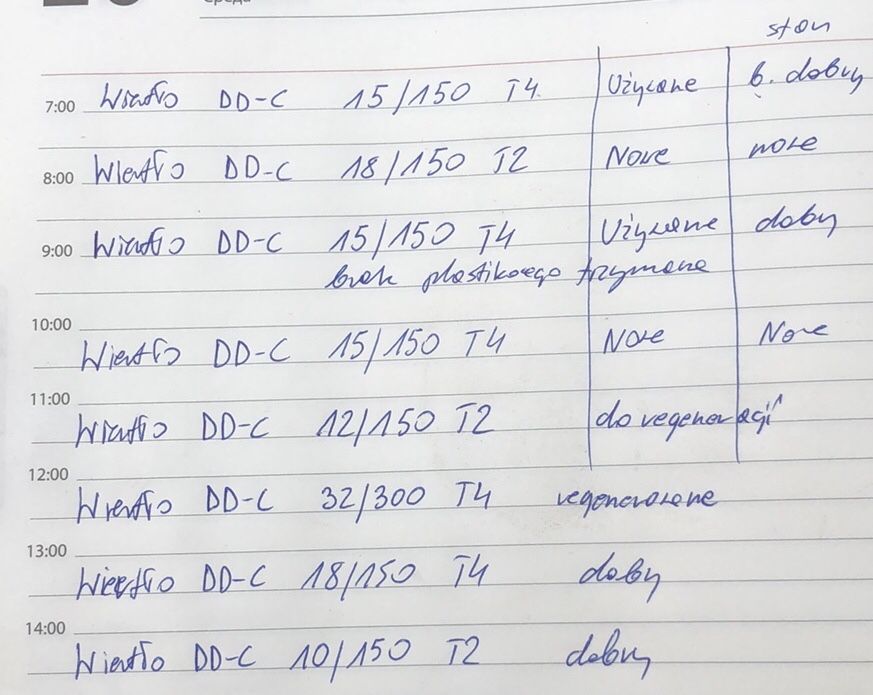 среда
stan
7:00 Wiertło DD-C 15/150 T4 Używane b. dobry
8:00 Wiertło DD-C 18/150 T2 Nowe nowe
9:00 Wiertło DD-C 15/150 T4 Używane dobry
brak plastikowego trzymana
10:00 Wiertło DD-C 15/150 T4 Nowe Nowe
11:00 Wiertło DD-C 12/150 T2 do regeneracji
12:00 Wiertło DD-C 32/300 T4 regenerowane
13:00 Wiertło DD-C 18/150 T4 dobry
14:00 Wiertło DD-C 10/150 T2 dobry